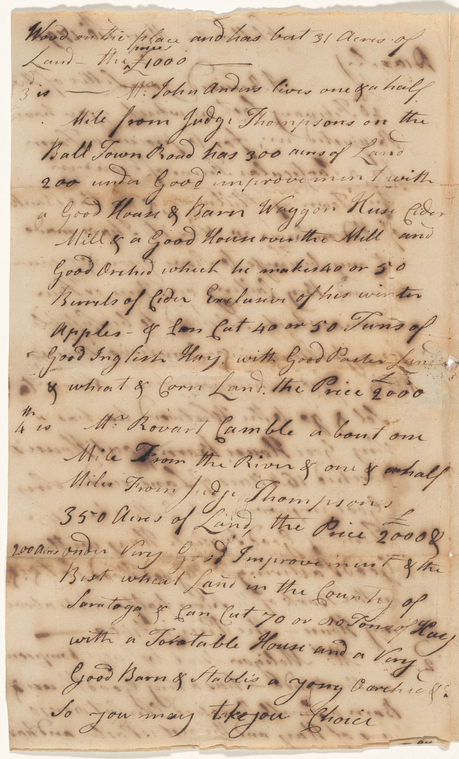 Wood on the place and has but 31 Acres of
Land - the price £1000
3 is — Mr. John Anders lives one & a half
Mile from Judge Thompsons on the
Ball Town Road has 300 acres of Land
200 under Good improvement with
a Good House & Barn Waggon Huse Cider
Mill & a Good House over the Mill and
Good Orched which he makes 40 or 50
Barrels of Cider Exclusive of his winter
Apples - & Can Cut 40 or 50 Tuns of
Good Inglish Hay with Good Paster Land
& wheat & Corn Land. the Price £2000
4th is Mr. Rovart Camble a bout one
Mile From the River & one & a half
Miles From Judge Thompsons
350 Acres of Land, the Price £2000 &
200 acres under Very Good Improvement & the
Best wheat Land in the County of
Saratoga & Can Cut 70 or 80 Tons of Hay
with a Toratable House and a Very
Good Barn & Stables a yong &c.
So you may take you Choice